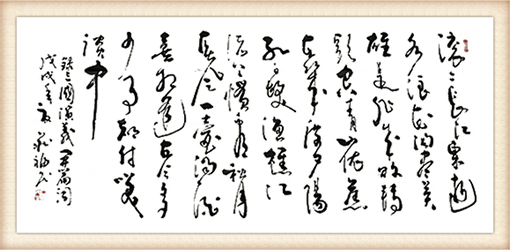 滚〻长江东逝
水浪花淘尽英
雄是非成败转
头空青山依旧
在几度夕阳
红白发渔樵江
渚上惯看秋月
春风一壶浊酒
喜相逢古今多
少事都付笑
谈中
录三国演义开篇词
戊戌年